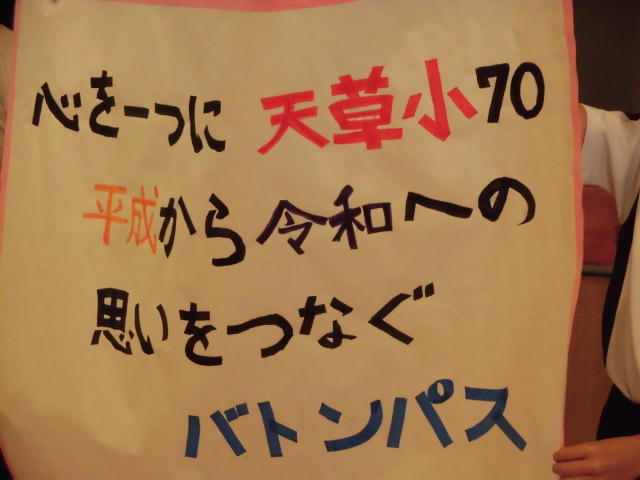 心を一つに 天草小70
平成から令和への
思いをつなぐ
バトンパス